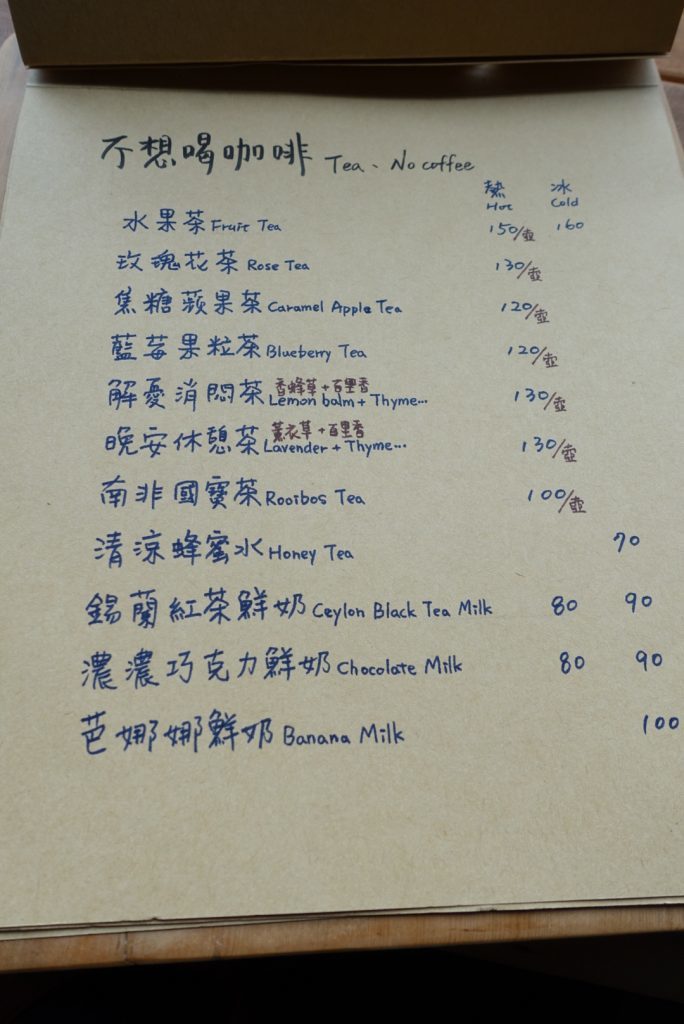 不想喝咖啡 Tea、No coffee
熱 冰
Hot Cold
水果茶 Fruit Tea 150/壺 160
玫瑰花茶 Rose Tea 130/壺
焦糖蘋果茶 Caramel Apple Tea 120/壺
藍莓果粒茶 Blueberry Tea 120/壺
香蜂草+百里香
解憂消悶茶 Lemon balm + Thyme... 130/壺
薰衣草+百里香
晚安休憩茶 Lavender + Thyme... 130/壺
南非國寶茶 Rooibos Tea 100/壺
清涼蜂蜜水 Honey Tea 70
錫蘭紅茶鮮奶 Ceylon Black Tea Milk 80 90
濃濃巧克力鮮奶 Chocolate Milk 80 90
芭娜娜鮮奶 Banana Milk 100